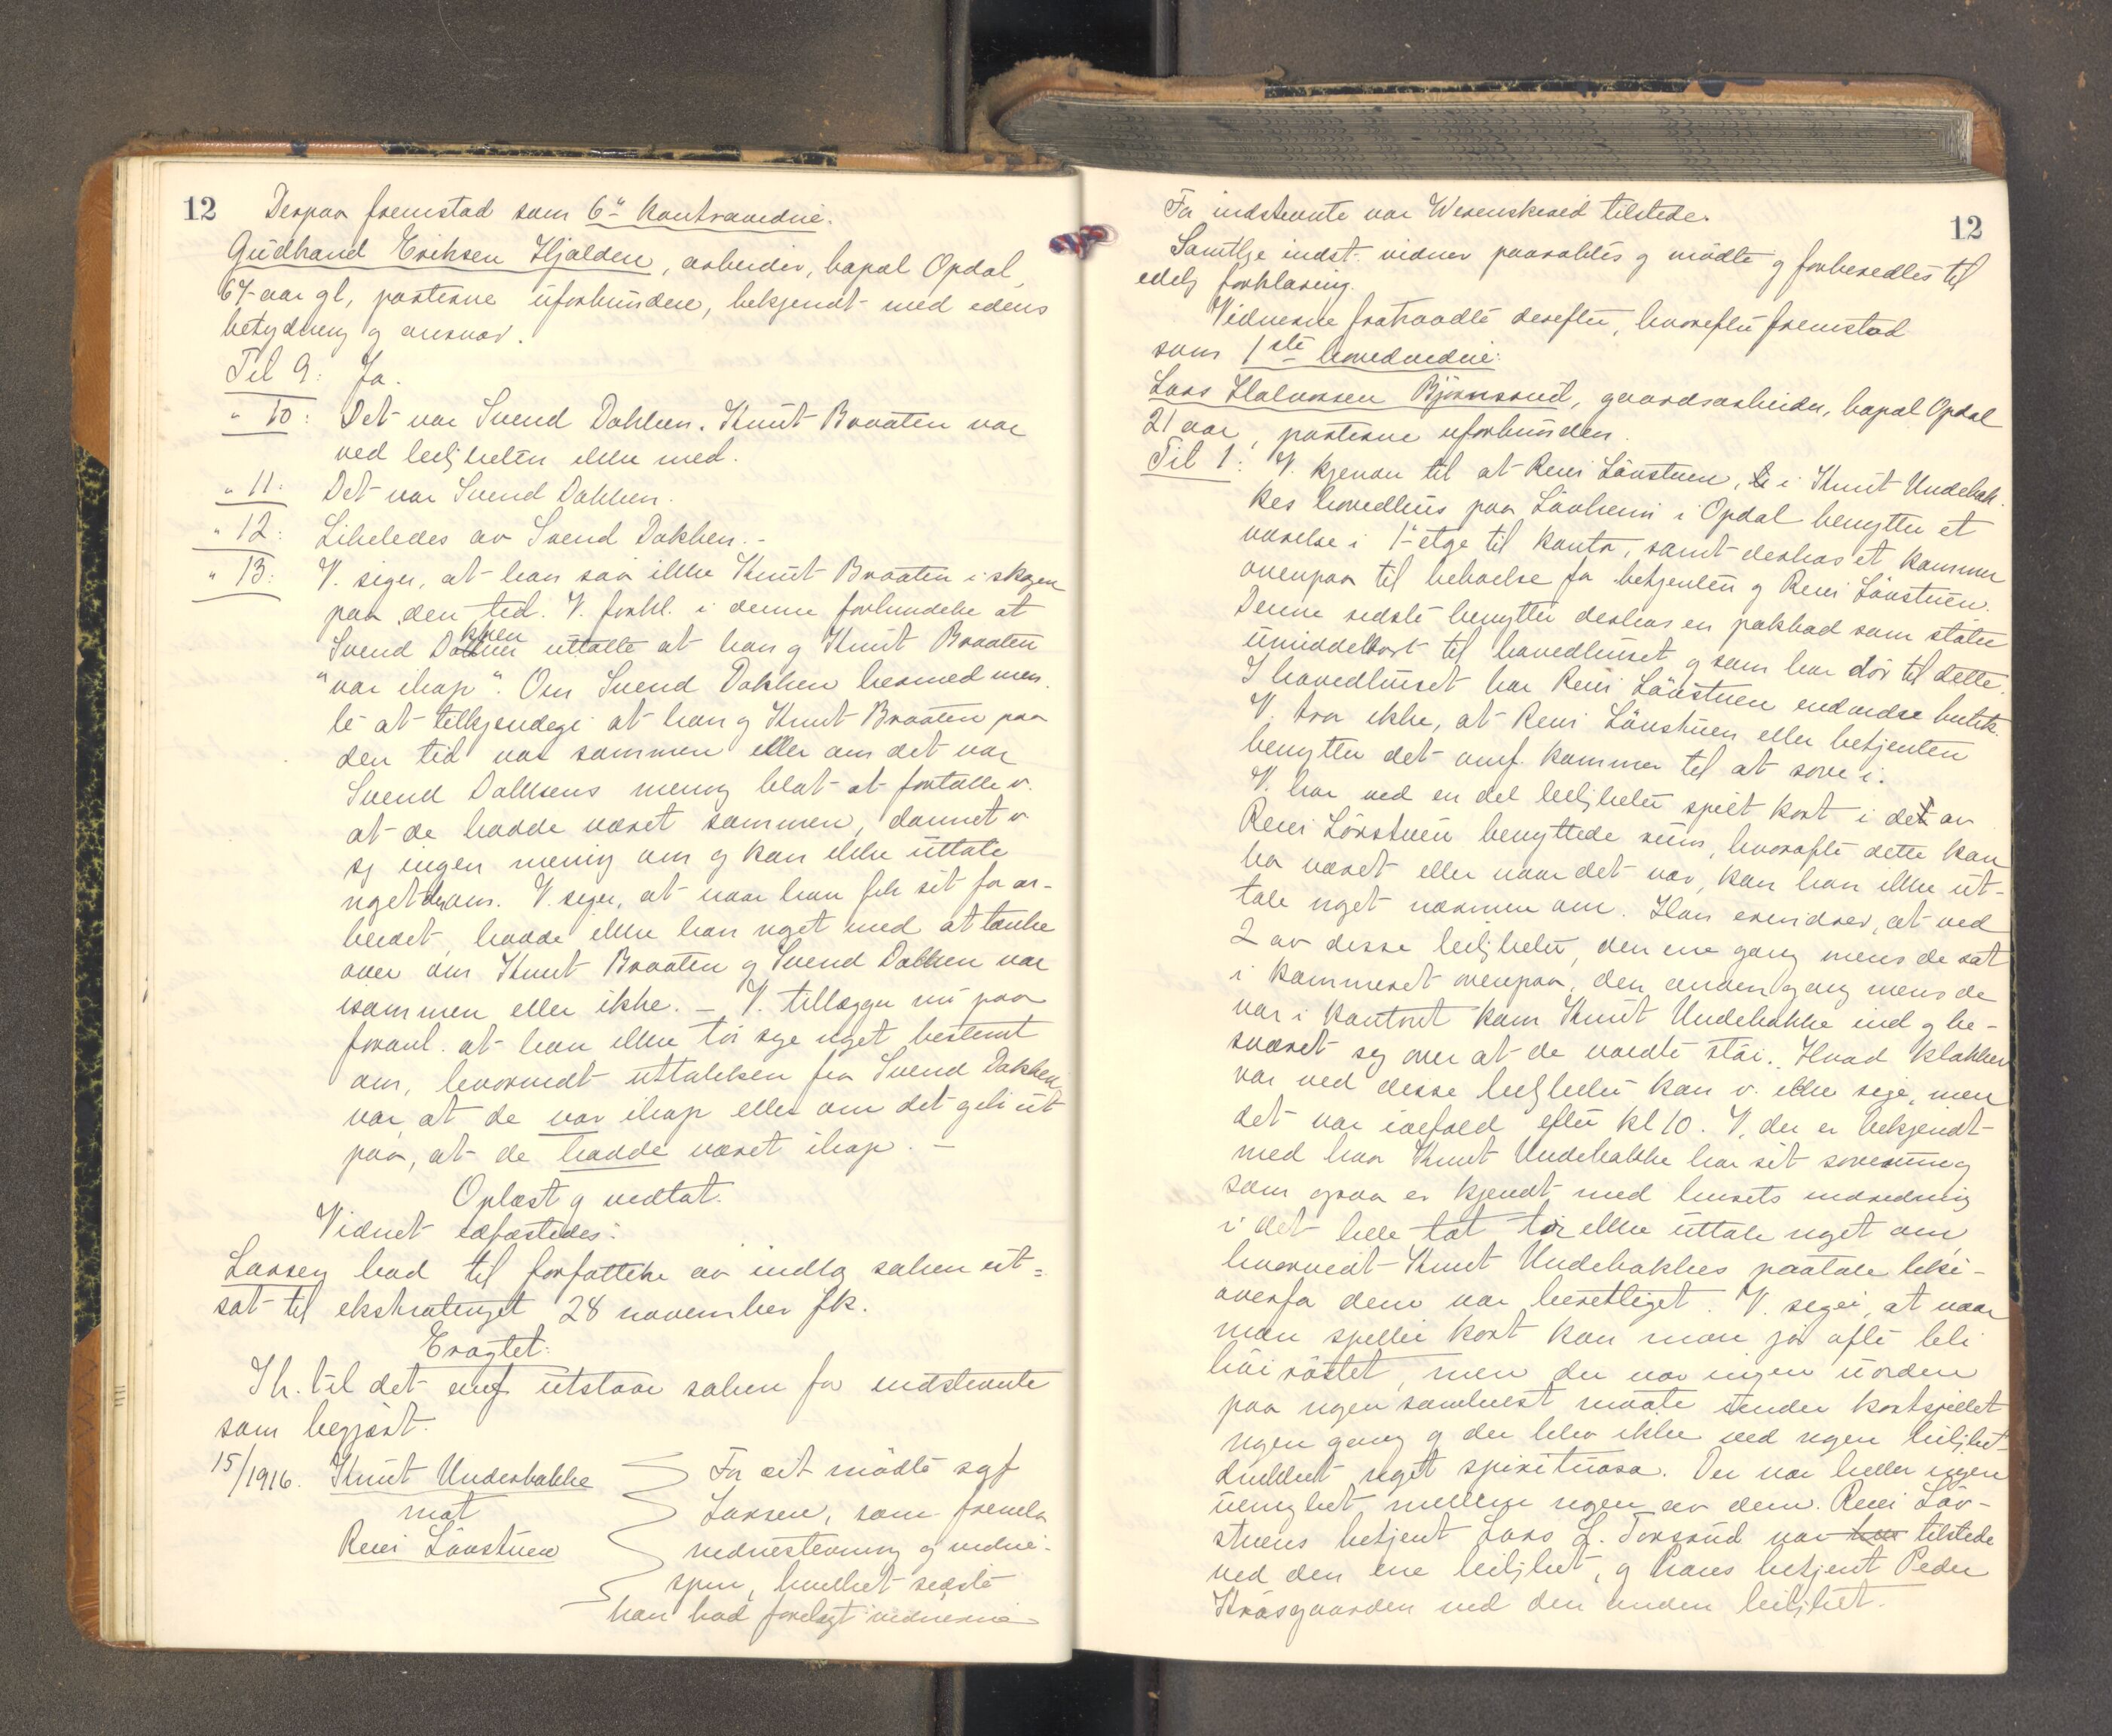 12
Derpaa fremstod som 6te kontravidne.
Gudbrand Eriksen Hjalden, arbeider, bopæl Opdal,
67 aar gl, parterne uforbunden, bekjendt med edens
betydning og ansvar.
Til 9: Ja.
" 10: Det var Svend Dokken. Knut Braaten var
ved leiligheten ikke med.
" 11: Det var Svend Dokken.
" 12: Likeledes av Svend Dokken. -
" 13: V. siger, at han saa ikke Knut Braaten i skogen
paa den tid. V. forkl. i denne forbindelse at
Svend Dokken uttalte at han og Knut Braaten
"var ihop". Om Svend Dokken hermed men-
te at tilkjendegi at han og Knut Braaten paa
den tid var sammen eller om det var
Svend Dokkens mening blot at fortælle v.
at de hadde været sammen, dannet v
sig ingen mening om og kan ikke uttale
noget derom. V. siger, at naar han fik sit for ar-
beidet, hadde ikke han noget med at tænke
over om Knut Braaten og Svend Dokken var
isammen eller ikke. - V. tillægger nu paa
foranl. at han ikke tør sige noget bestemt
om, hvorvidt uttalelsen fra Svend Dokken
var, at de var ihop eller om det gik ut
paa, at de hadde været ihop. -
Oplæst og vedtat.
Vidnet edfæstedes:
Larsen bad til forfattelse av indlæg saken ut-
sat til ekstratinget 28 november fk.
Eragtet:
Th. til det anf. utstaar saken for indstevnte
som begjært.
15/1916. Knut Underbakke
mot
Reiei Lövstuen
For cit. mödte sgf
Larsen, som fremla
vidnestevning og vidne-
spm, hvilket sidste
han bad forelagt vidnerne
12
For indstevnte var Wesenskeid tilstede.
Samtlige indst. vidner paaroptes og mödte og forberedtes til
edelig forklaring.
Vidnerne fratraadte derefter, hvorefter fremstod
som 1ste hovedvidne:
Lars Halvorsen Björnsrud, gaardsarbeider, bopæl Opdal
21 aar, parterne uforbunden.
Til 1: V. kjender til at Reiei Lövstuen, i Knut Undebak-
kes hovedhus paa Lövheim i Opdal benytter et
værelse i 1ste etage til kontor, samt desuten et kammer
ovenpaa til beboelse for betjenten og Reiei Lövstuen.
Denne sidste benytter desuten en pakbod som støter
umiddelbart til hovedhuset og som har dör til dette.
I hovedhuset har Reiei Lövstuen endvidere butik.
V. tror ikke, at Reiei Lövstuen eller betjenten
benytter det omf. kammer til at sove i.
V. har ved en del leiligheter spilt kort i det av
Reiei Lövstuen benyttede rum, hvorofte dette kan
ha været eller naar det var, kan han ikke ut-
tale noget nærmere om. Han erindrer, at ved
2 av disse leiligheter, den ene gang mens de sat
i kammeret ovenpaa, den anden gang mens de
var i kontoret kom Knut Undebakke ind og be-
sværet sig over at de voldte stöi. Hvad klokken
var ved disse leiligheter kan v. ikke sige, men
det var ialfald efter kl 10. V. der er bekjendt
med hvor Knut Undebakke har sit soverum og
som ogsaa er kjendt med husets indredning
i det hele tat tör ikke uttale noget om,
hvorvidt Knut Undebakkes paatale like-
overfor dem var berettiget. V. siger, at naar
man spiller kort kan man jo ofte bli
höi röstet, men der var ingen uorden
paa nogen somhelst maate under kortspillet
nogen gang og der blev ikke ved nogen leilighet
drukket noget spirituosa. Der var heller ingen
uenighet mellem nogen av dem. Reiei Löv-
stuens betjent Lars L. Torsrud var tilstede
ved den ene leilighet, og hans betjent Peder
Kråsgaarden ved den anden leilighet.